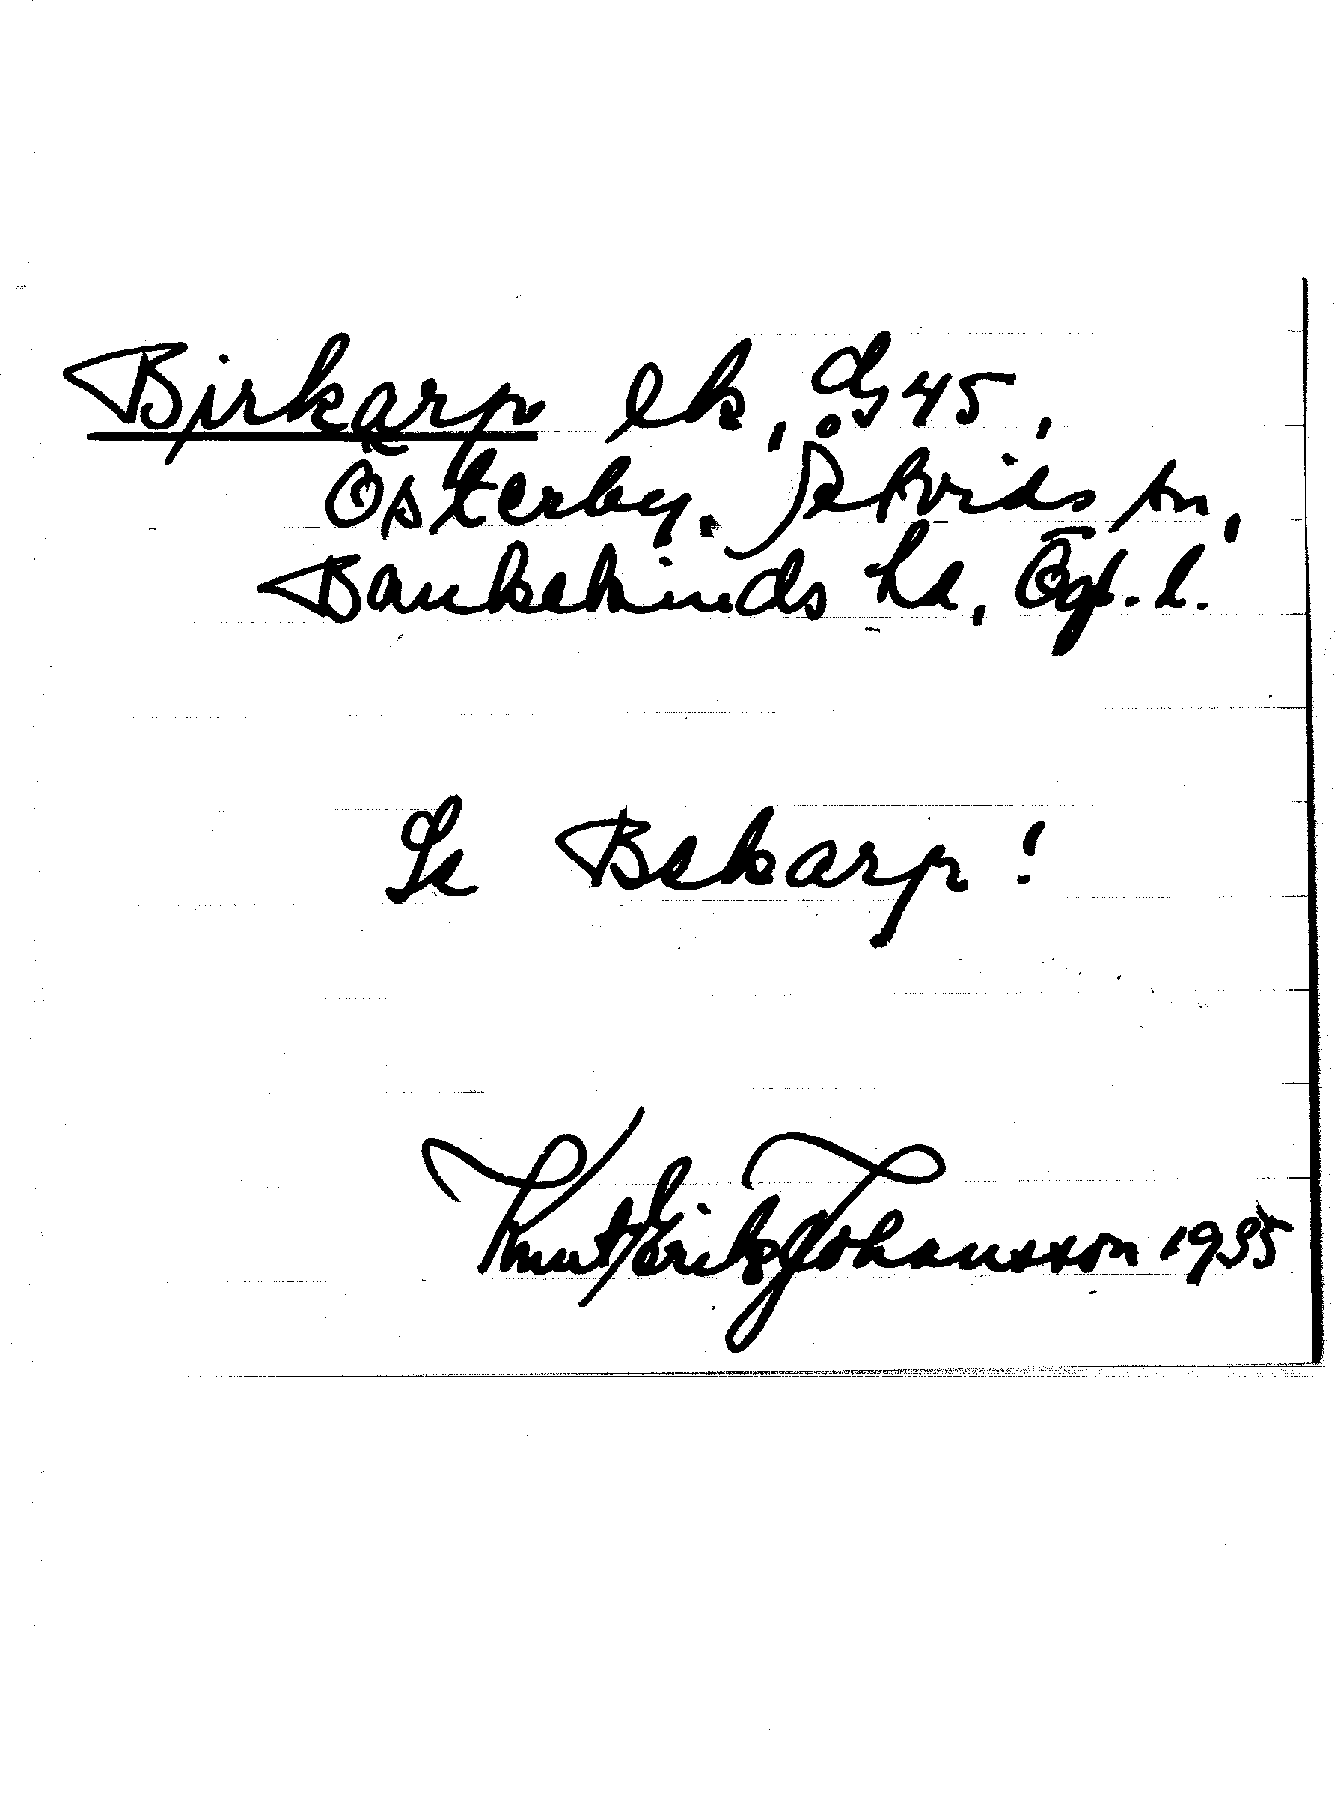 Birkarp ek, G 45,
Österby, Åtvids sn,
Bankekinds hd, Ögl. l.
Se Bekarp!
Knut Erik Johansson 1935